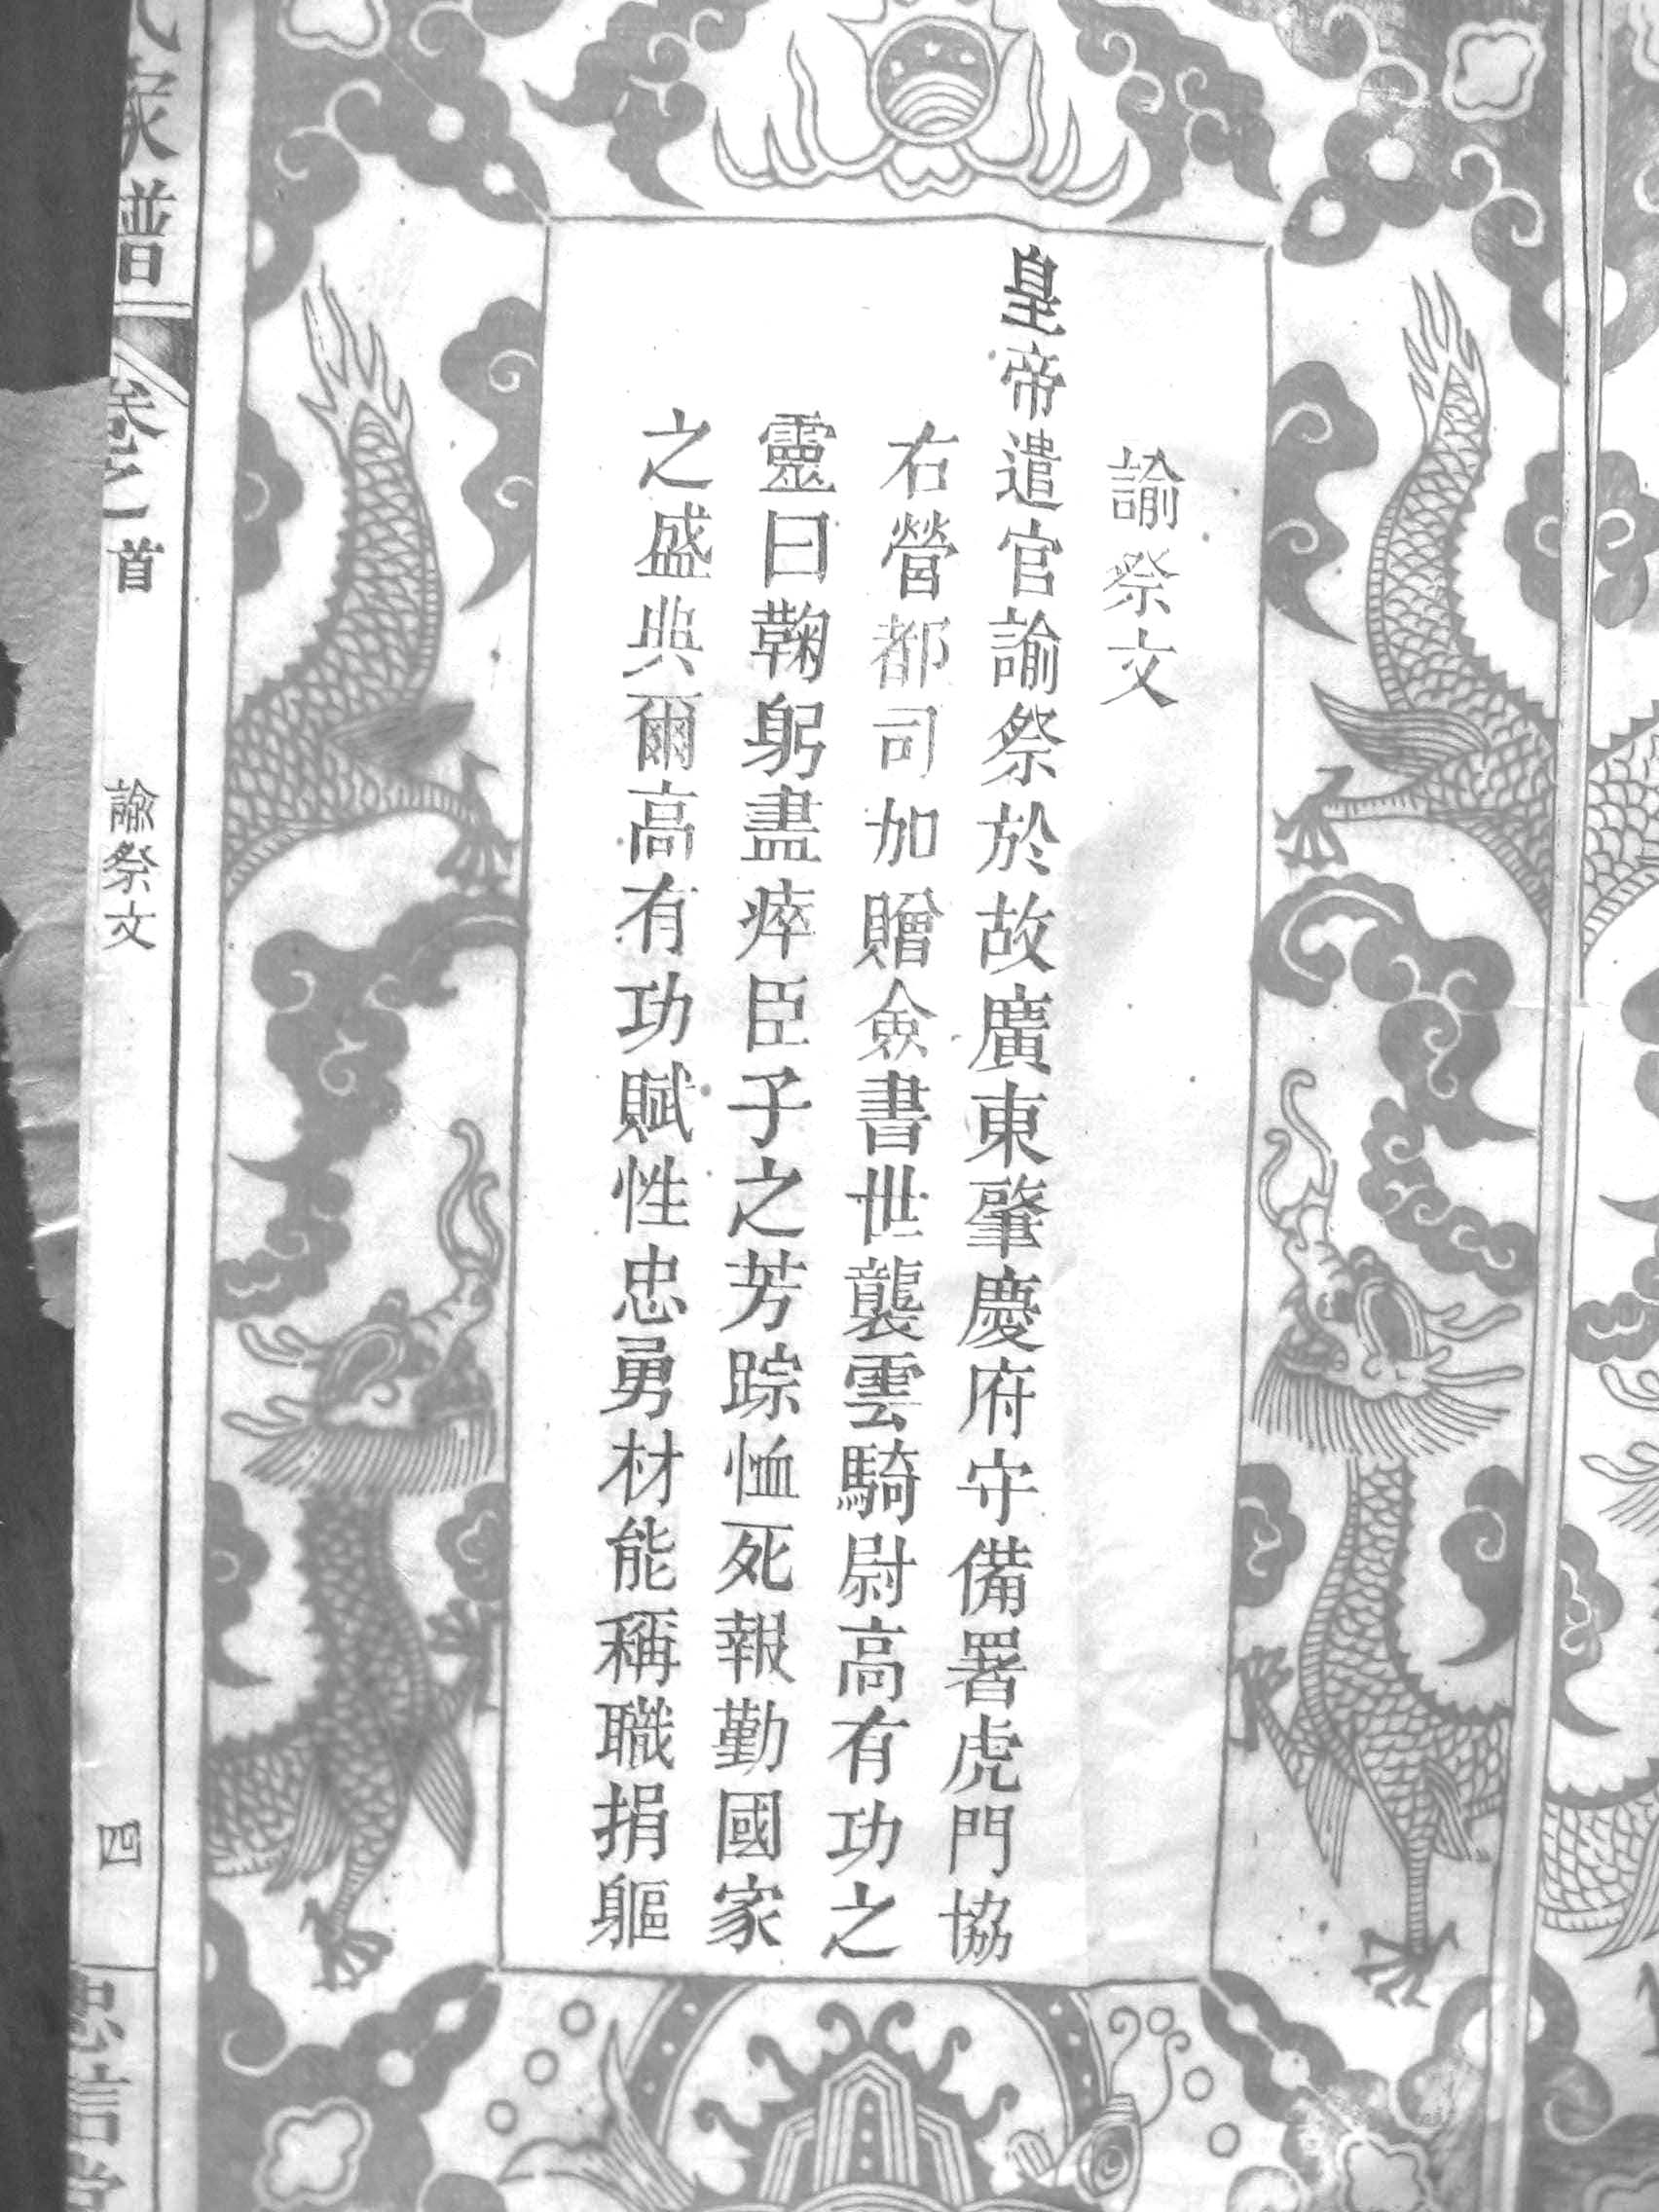 諭祭文
皇帝遣官諭祭於故廣東肇慶府守備署虎門協
右營都司加贈僉書世襲雲騎尉高有功之
靈曰鞠躬盡瘁臣子之芳踪恤死報勤國家
之盛典爾高有功賦性忠勇材能稱職捐軀
家譜
卷之首
諭祭文
四
忠信堂